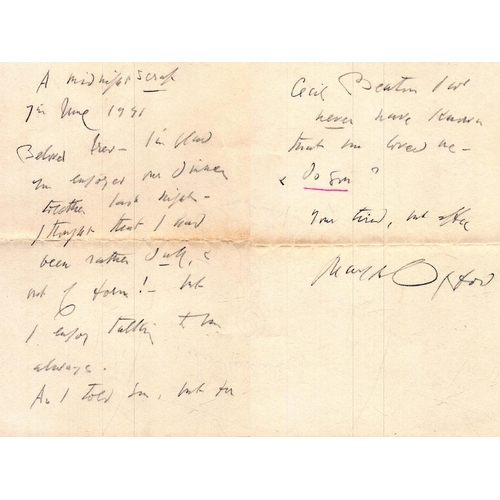 A midnight Scrap
7th June 1941
Beloved – I'm glad
you enjoyed our dinner
together last night –
I thought that I had
been rather dull, &
out of form! – but
I enjoy talking to you
always.
As I told you, but for
Cecil Beaton I wd
never have known
that you loved me –
& do you?
Your tired, but
Margot Oxford